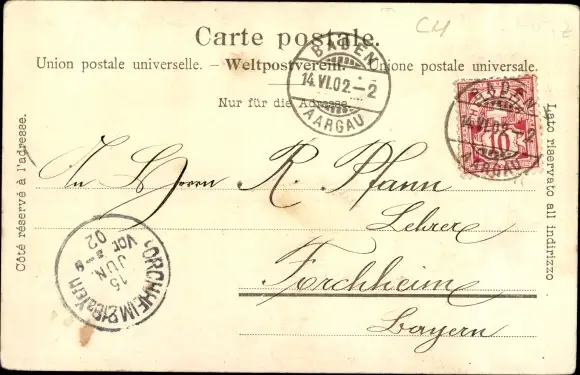 CH
Carte postale.
Union postale universelle. – Weltpostverein. – Unione postale universale.
Nur für die Adresse.
BADEN
14.VI.02.–2
AARGAU
BADEN
14.VI.02.–2
AARGAU
10
Côté réservé à l'adresse.
Lato riservato all indirizzo
An Herrn R. Pfann
Lehrer
Forchheim
Bayern
FORCHHEIM 2 Bayern
15
JUN.
Vor 8-9
02